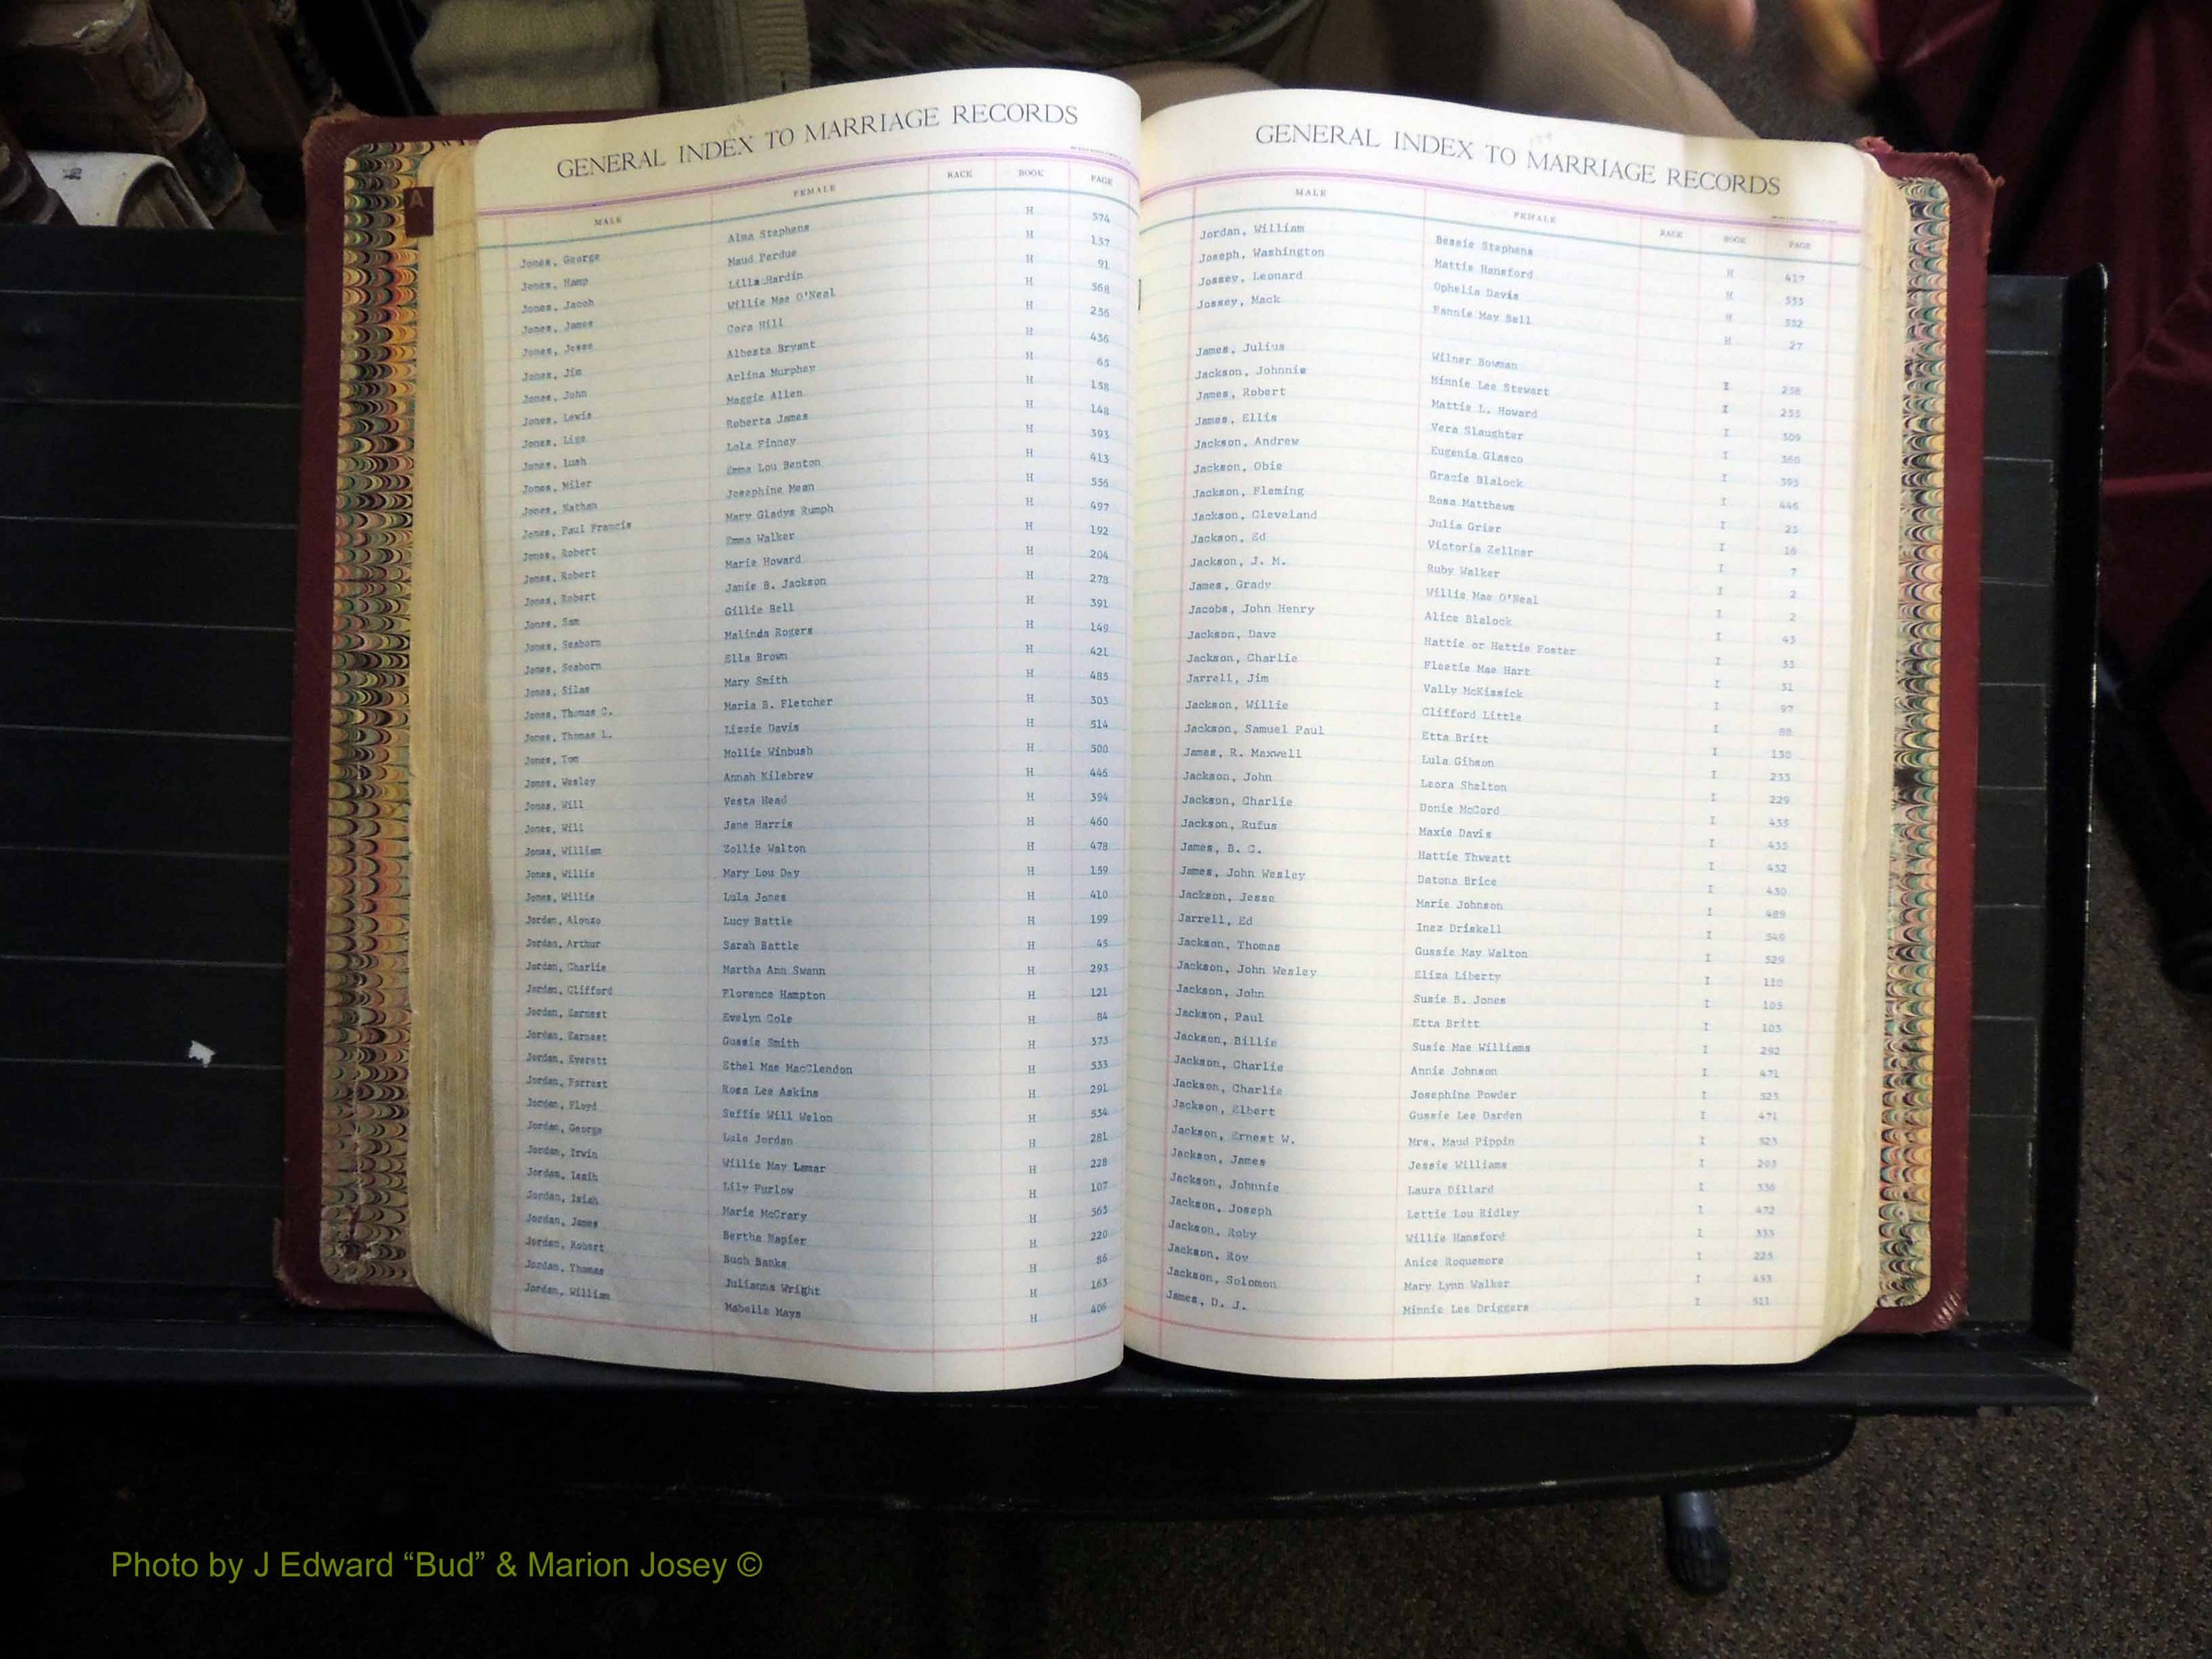 GENERAL INDEX TO MARRIAGE RECORDS
MALE FEMALE RACE BOOK PAGE
Jones, George Alma Stephens H 574
Jones, Hamp Maud Perdue H 157
Jones, Jacob Lilla Hardin H 91
Jones, James Willie Mae O'Neal H 568
Jones, Jesse Cora Hill H 256
Jones, Jim Albesta Bryant H 436
Jones, John Arlina Murphey H 65
Jones, Lewis Maggie Allen H 158
Jones, Lige Roberta James H 148
Jones, Lush Lola Finney H 393
Jones, Miler Emma Lou Benton H 413
Jones, Nathan Josephine Mean H 556
Jones, Paul Francis Mary Gladys Rumph H 497
Jones, Robert Emma Walker H 192
Jones, Robert Marie Howard H 204
Jones, Robert Janie B. Jackson H 278
Jones, Sam Gillie Bell H 391
Jones, Seaborn Malinda Rogers H 149
Jones, Seaborn Ella Brown H 421
Jones, Silas Mary Smith H 485
Jones, Thomas C. Maria B. Fletcher H 303
Jones, Thomas L. Lizzie Davis H 514
Jones, Tom Mollie Winbush H 500
Jones, Wesley Annah Kilebrew H 446
Jones, Will Vesta Head H 394
Jones, Will Jane Harris H 460
Jones, William Zollie Walton H 478
Jones, Willie Mary Lou Day H 159
Jones, Willie Lula Jones H 410
Jordan, Alonzo Lucy Battle H 199
Jordan, Arthur Sarah Battle H 45
Jordan, Charlie Martha Ann Swann H 293
Jordan, Clifford Florence Hampton H 121
Jordan, Earnest Evelyn Cole H 84
Jordan, Earnest Gussie Smith H 373
Jordan, Everett Ethel Mae MacClendon H 533
Jordan, Forrest Rosa Lee Askins H 291
Jordan, Floyd Seffie Will Welon H 534
Jordan, George Lula Jordan H 281
Jordan, Irwin Willie May Lamar H 228
Jordan, Isaih Lily Furlow H 107
Jordan, Isiah Marie McCrary H 563
Jordan, James Bertha Napier H 220
Jordan, Robert Buch Banks H 86
Jordan, Thomas Julianna Wright H 163
Jordan, William Mabelle Mays H 406
GENERAL INDEX TO MARRIAGE RECORDS
MALE FEMALE RACE BOOK PAGE
Jordan, William Bessie Stephens H 417
Joseph, Washington Mattie Hansford H 333
Jossey, Leonard Ophelia Davis H 552
Jossey, Mack Fannie May Bell H 27
James, Julius Wilner Bowman I 258
Jackson, Johnnie Minnie Lee Stewart I 255
James, Robert Mattie L. Howard I 309
James, Ellis Vera Slaughter I 360
Jackson, Andrew Eugenia Glasco I 393
Jackson, Obie Gracie Blalock I 446
Jackson, Fleming Rosa Matthews I 23
Jackson, Cleveland Julia Grier I 16
Jackson, Ed Victoria Zellner I 7
Jackson, J. M. Ruby Walker I 2
James, Grady Willie Mae O'Neal I 2
Jacobs, John Henry Alice Blalock I 43
Jackson, Dave Hattie or Hettie Foster I 33
Jackson, Charlie Fleetie Mae Hart I 31
Jarrell, Jim Vally McKissick I 97
Jackson, Willie Clifford Little I 88
Jackson, Samuel Paul Etta Britt I 130
James, R. Maxwell Lula Gibson I 233
Jackson, John Leora Shelton I 229
Jackson, Charlie Donie McCord I 433
Jackson, Rufus Maxie Davis I 435
James, B. C. Hattie Thweatt I 452
James, John Wesley Datona Brice I 450
Jackson, Jesse Marie Johnson I 489
Jarrell, Ed Inez Driskell I 549
Jackson, Thomas Gussie May Walton I 529
Jackson, John Wesley Eliza Liberty I 110
Jackson, John Susie B. Jones I 105
Jackson, Paul Etta Britt I 103
Jackson, Billie Susie Mae Williams I 292
Jackson, Charlie Annie Johnson I 471
Jackson, Charlie Josephine Powder I 523
Jackson, Elbert Gussie Lee Darden I 471
Jackson, Ernest W. Mrs. Maud Pippin I 523
Jackson, James Jessie Williams I 203
Jackson, Johnnie Laura Dillard I 336
Jackson, Joseph Lettie Lou Ridley I 472
Jackson, Roby Willie Hansford I 333
Jackson, Roy Anice Roquemore I 225
Jackson, Solomon Mary Lynn Walker I 453
James, D. J. Minnie Lee Driggers I 511
A
Photo by J Edward “Bud” & Marion Josey ©